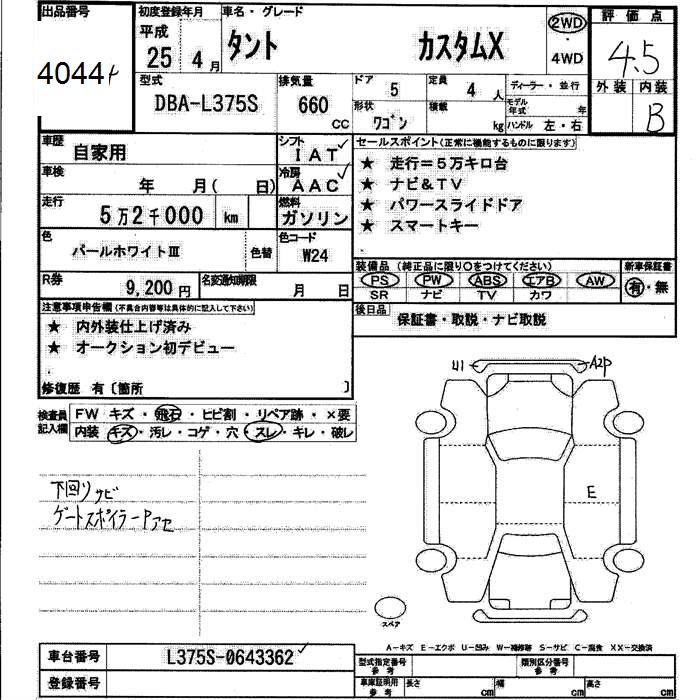 出品番号
4044
初度登録年月
平成
25 4 月
車名・グレード
タント カスタムX
2WD
・
4WD
評価点
4.5
外装 内装
B
型式
DBA-L375S
排気量
660
CC
ドア 5
定員 4 人
形状 ワゴン
積載 kg
ディーラー・並行
モデル年式 年
ハンドル 左・右
車歴
自家用
シフト
IAT
車検
年 月( 日)
冷房
AAC
走行
5万2千000 km
燃料
ガソリン
色
パールホワイトⅢ
色替
色コード
W24
R券
9,200円
名変通知期限
月 日
セールスポイント(正常に機能するものに限ります)
★ 走行=5万キロ台
★ ナビ&TV
★ パワースライドドア
★ スマートキー
装備品(純正品に限り○をつけてください)
PS PW ABS エアB AW
SR ナビ TV カワ
新車保証書
有・無
後日品
保証書・取説・ナビ取説
注意事項申告欄(不具合内容等は具体的に記入して下さい)
★ 内外装仕上げ済み
★ オークション初デビュー
修復歴 有〔箇所 〕
検査員
記入欄
FW キズ・飛石・ヒビ割・リペア跡・×要
内装 キズ・汚レ・コゲ・穴・スレ・キレ・破レ
下回りサビ
ゲートスポイラーPアセ
U1
A2P
E
スペア
A-キズ E-エクボ U-凹み W-補修跡 S-サビ C-腐食 XX-交換済
車台番号
L375S-0643362
登録番号
型式指定番号
参考
類別区分番号
参考
車庫証明用
参考
長さ cm
幅 cm
高さ cm